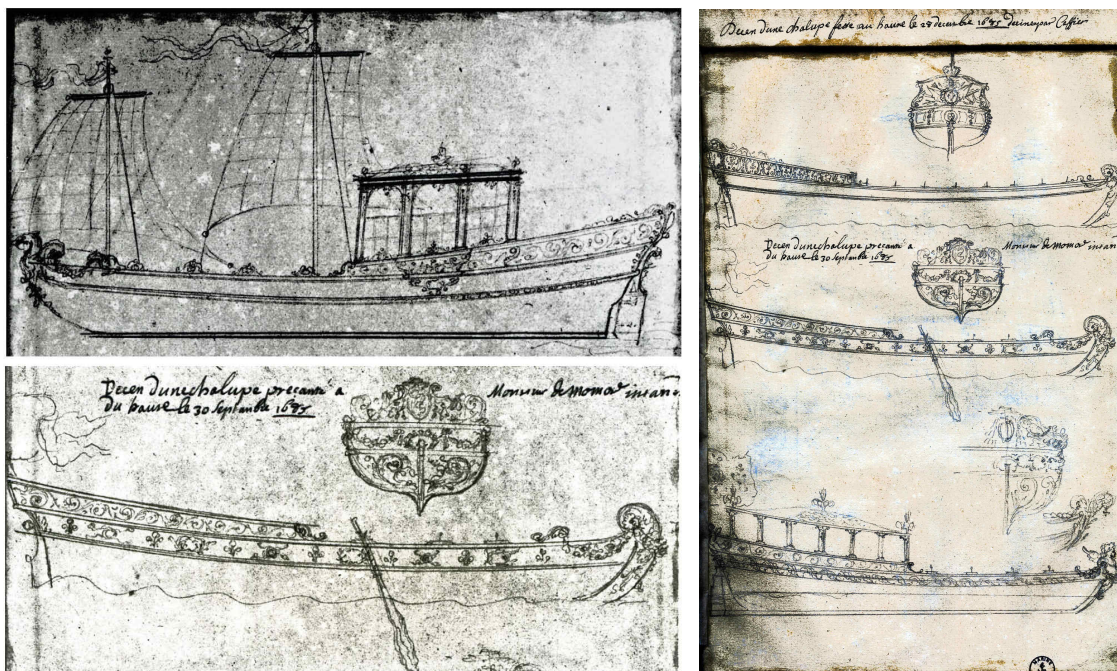 Decen dune chalupe precanté a Monsieur de momor
du haure le 30 septanbre 1685
Decen dune chalupe fette au haure le 28 decembre 1685
Decen dune chalupe precanté a Monsieur de momor
du haure le 30 septanbre 1685